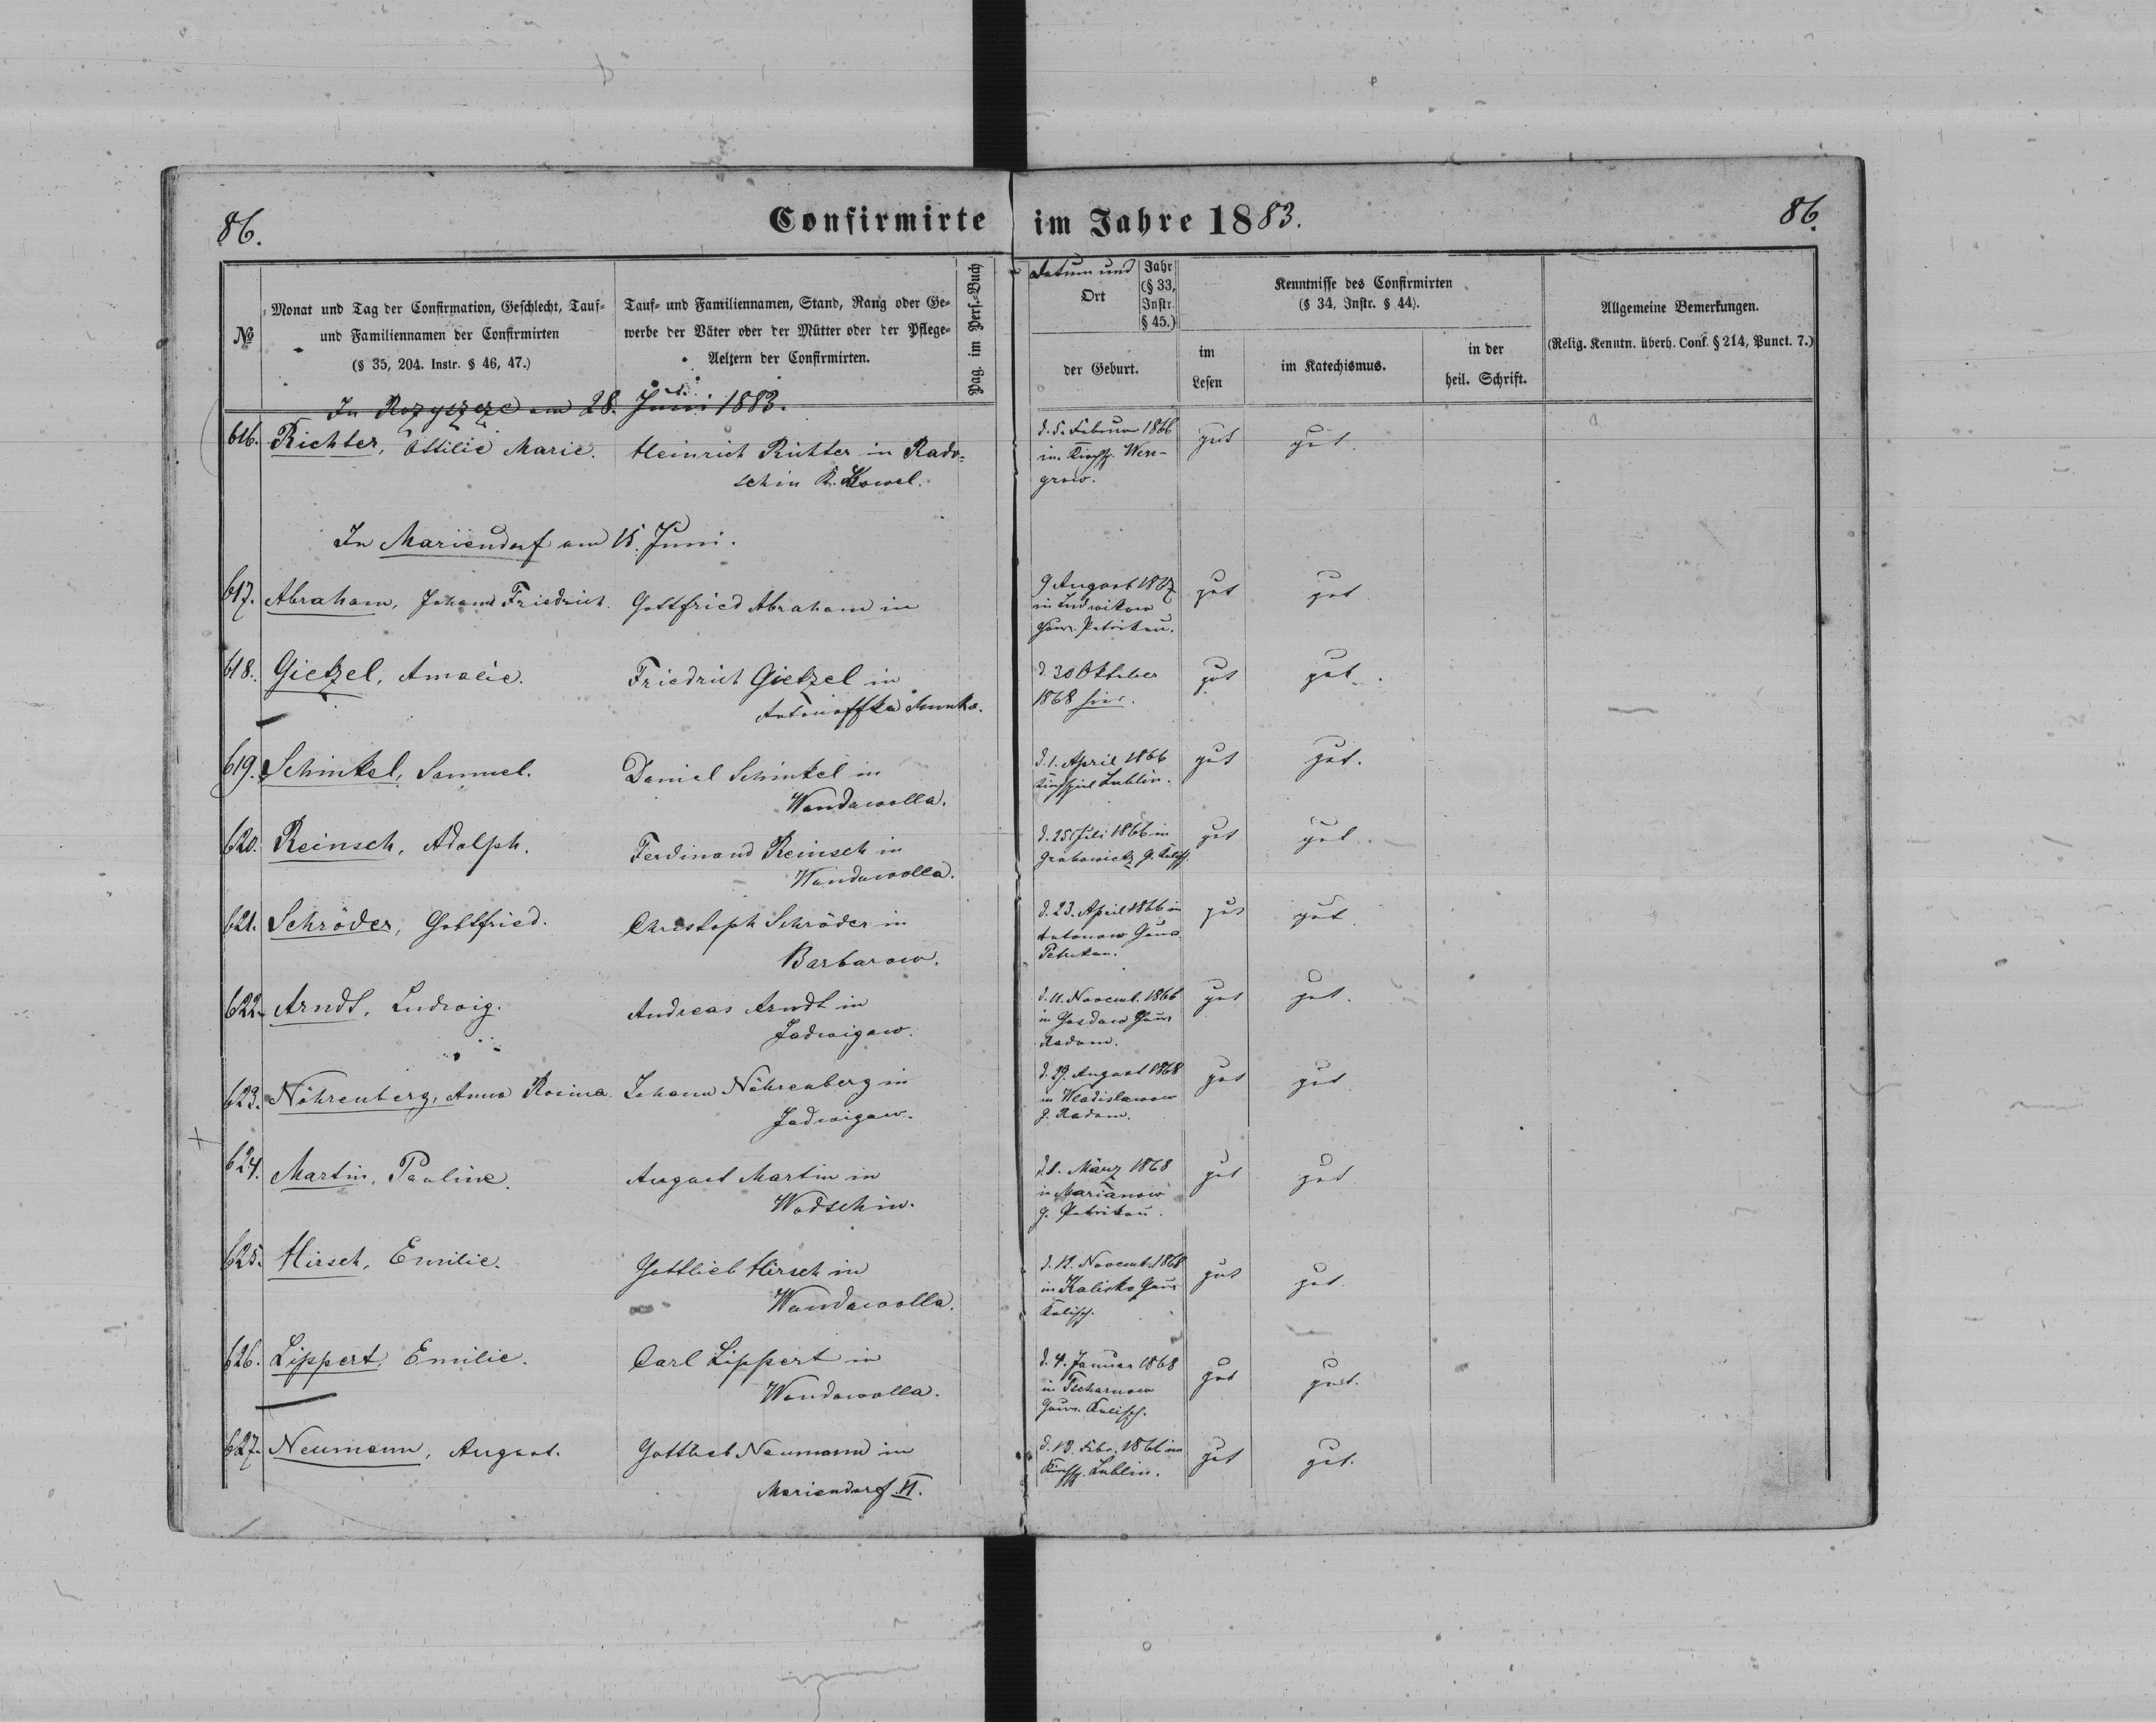 86.
Confirmirte im Jahre 1883.
86.
№
Monat und Tag der Confirmation, Geschlecht, Tauf-
und Familiennamen der Confirmirten
(§ 35, 204. Instr. § 46, 47.)
Tauf- und Familiennamen, Stand, Rang oder Ge-
werbe der Väter oder der Mütter oder der Pflege-
Aeltern der Confirmirten.
Pag. im Pers.-Buch
Datum und
Ort
Jahr
(§ 33,
Instr.
§ 45.)
der Geburt.
Kenntnisse des Confirmirten
(§ 34, Instr. § 44).
im
Lesen
im Katechismus.
in der
heil. Schrift.
Allgemeine Bemerkungen.
(Relig. Kenntn. überh. Conf. § 214, Punct. 7.)
In Rozyszcze am 28. Juni 1883.
616. Richter, Ottilie Marie. Heinrich Richter in Rado-
schin K. Kowel.
d. 5. Februar 1866
in Kirchsp. Wen-
grow.
gut gut
In Mariendorf am 15. Juni.
617. Abraham, Johann Friedrich. Gottfried Abraham in
9 August 1867
in Ludwikow
Gouv. Petrikau.
gut gut
618. Gietzel, Amalie. Friedrich Gietzel in
Antonoffka
d. 30 Oktober
1868 hier.
gut gut.
619. Schinkel, Samuel. Daniel Schinkel in
Wandawolla.
d. 1. April 1866
Kirchspiel Lublin.
gut gut.
620. Reinsch, Adolph. Ferdinand Reinsch in
Wandawolla.
d. 25 Juli 1866 in
Grabowietz G. Kalisch.
gut gut
621. Schröder, Gottfried. Christoph Schröder in
Barbarow.
d. 23. April 1866 in
Antonow Gouv.
Petrikau.
gut gut
622. Arndt, Ludwig. Andreas Arndt in
Jadwigow.
d. 11. Novemb. 1866
in Gosdow Gouv
Radom.
gut gut.
623. Nöhrenberg, Anna Rosina. Johann Nöhrenberg in
Jadwigow.
d. 29. August 1868
in Wladislawow
g. Radom.
gut gut
624. Martin, Pauline. August Martin in
Wodschin.
d. 8. März 1868
in Marianow
g. Petrikau.
gut gut
625. Hirsch, Emilie. Gottlieb Hirsch in
Wandawolla.
d. 12. Novemb. 1868
in Kalisko Gouv
Kalisch.
gut gut.
626. Lippert, Emilie. Carl Lippert in
Wandawolla.
d. 4. Januar 1868
in Tscharnow
Gouv. Kalisch.
gut gut.
627. Neumann, August. Gottlieb Neumann in
Mariendorf II.
d. 18. Febr. 1866 im
Kirchsp. Lublin.
gut gut.